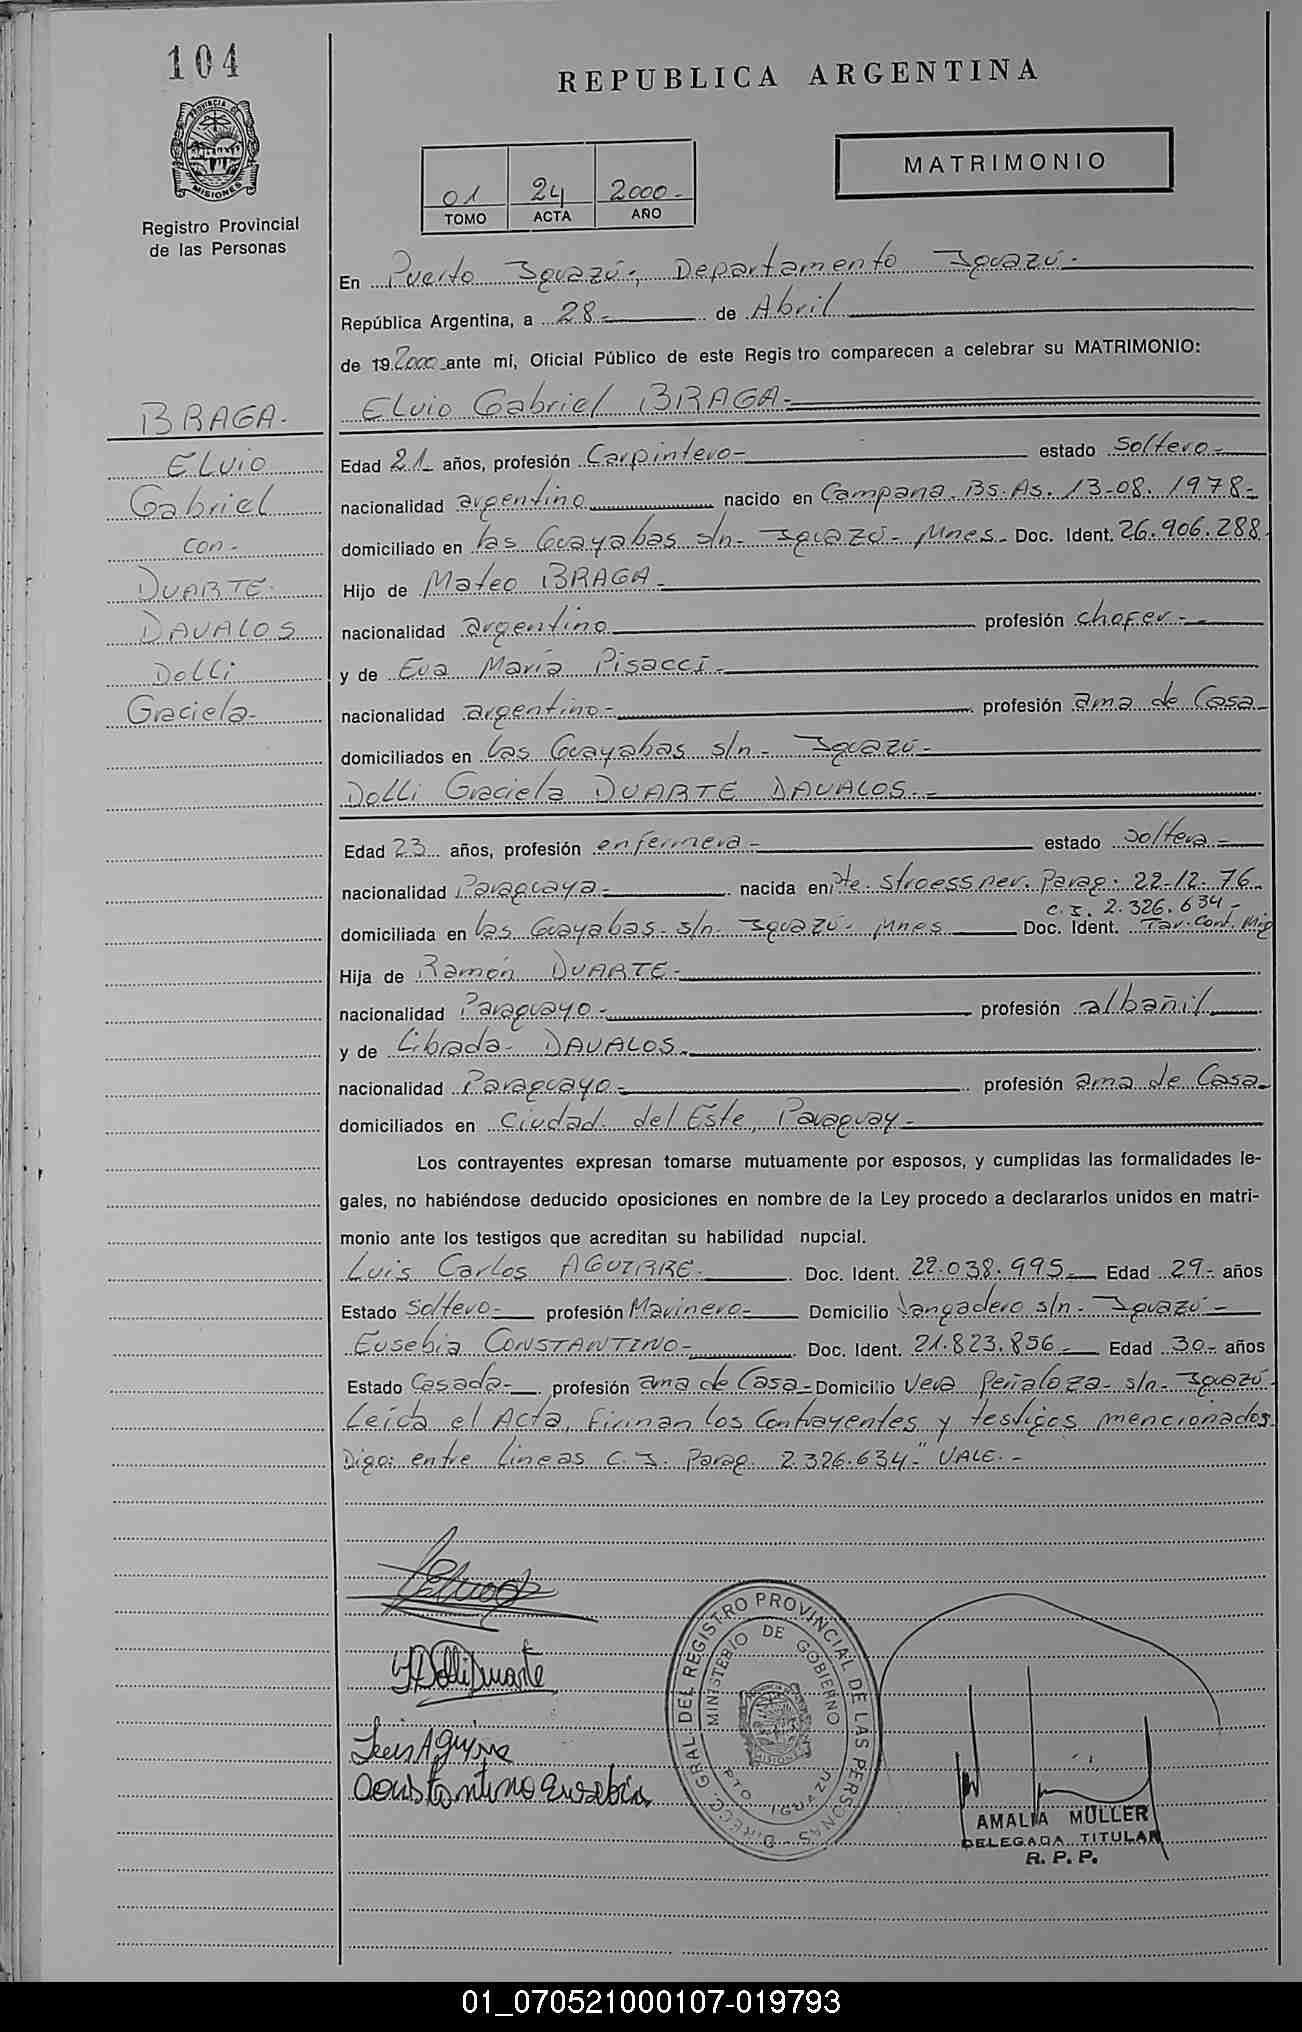 104
REPUBLICA ARGENTINA
PROVINCIA DE
MISIONES
Registro Provincial
de las Personas
01 24 2000-
TOMO ACTA AÑO
MATRIMONIO
En Puerto Iguazú-, Departamento Iguazú-
República Argentina, a 28- de Abril
de 19 2000 ante mí, Oficial Público de este Registro comparecen a celebrar su MATRIMONIO:
BRAGA-
Elvio
Gabriel
con-
DUARTE-
DAVALOS
Dolli
Graciela-
Elvio Gabriel BRAGA-
Edad 21 años, profesión Carpintero- estado soltero-
nacionalidad argentino nacido en Campana. Bs. As. 13-08. 1978-
domiciliado en las Guayabas s/n- Iguazú- Mnes- Doc. Ident. 26.906.288
Hijo de Mateo BRAGA-
nacionalidad argentino profesión chofer-
y de Eva María Pisacci-
nacionalidad argentino- profesión ama de Casa
domiciliados en las Guayabas s/n- Iguazú-
Dolli Graciela DUARTE DAVALOS.-
Edad 23 años, profesión enfermera- estado soltera-
nacionalidad Paraguaya- nacida en Pte. Stroessner. Parag. 22-12-76
C.I. 2.326.634-
domiciliada en las Guayabas- s/n- Iguazú- Mnes Doc. Ident. Tar. Cont. Mig
Hija de Ramón DUARTE-
nacionalidad Paraguayo- profesión albañil
y de Librada- DAVALOS-
nacionalidad Paraguayo- profesión ama de Casa
domiciliados en Ciudad del Este, Paraguay-
Los contrayentes expresan tomarse mutuamente por esposos, y cumplidas las formalidades le-
gales, no habiéndose deducido oposiciones en nombre de la Ley procedo a declararlos unidos en matri-
monio ante los testigos que acreditan su habilidad nupcial.
Luis Carlos AGUIRRE- Doc. Ident. 22.038.995- Edad 29- años
Estado Soltero- profesión Marinero- Domicilio Vangadero s/n- Iguazú-
Eusebia CONSTANTINO- Doc. Ident. 21.823.856- Edad 30- años
Estado Casada- profesión ama de Casa- Domicilio Vera Peñaloza- s/n- Iguazú-
Leída el Acta, firman los Contrayentes y testigos mencionados
Digo: entre lineas C. I. Parag. 2.326.634-" VALE.-
Dolli Duarte
Luis Aguirre
Constantino Eusebia
DIRECC. GRAL. DEL REGISTRO PROVINCIAL DE LAS PERSONAS
MINISTERIO DE GOBIERNO
MISIONES
PTO IGUAZU
AMALIA MULLER
DELEGADA TITULAR
R. P. P.
01_070521000107-019793